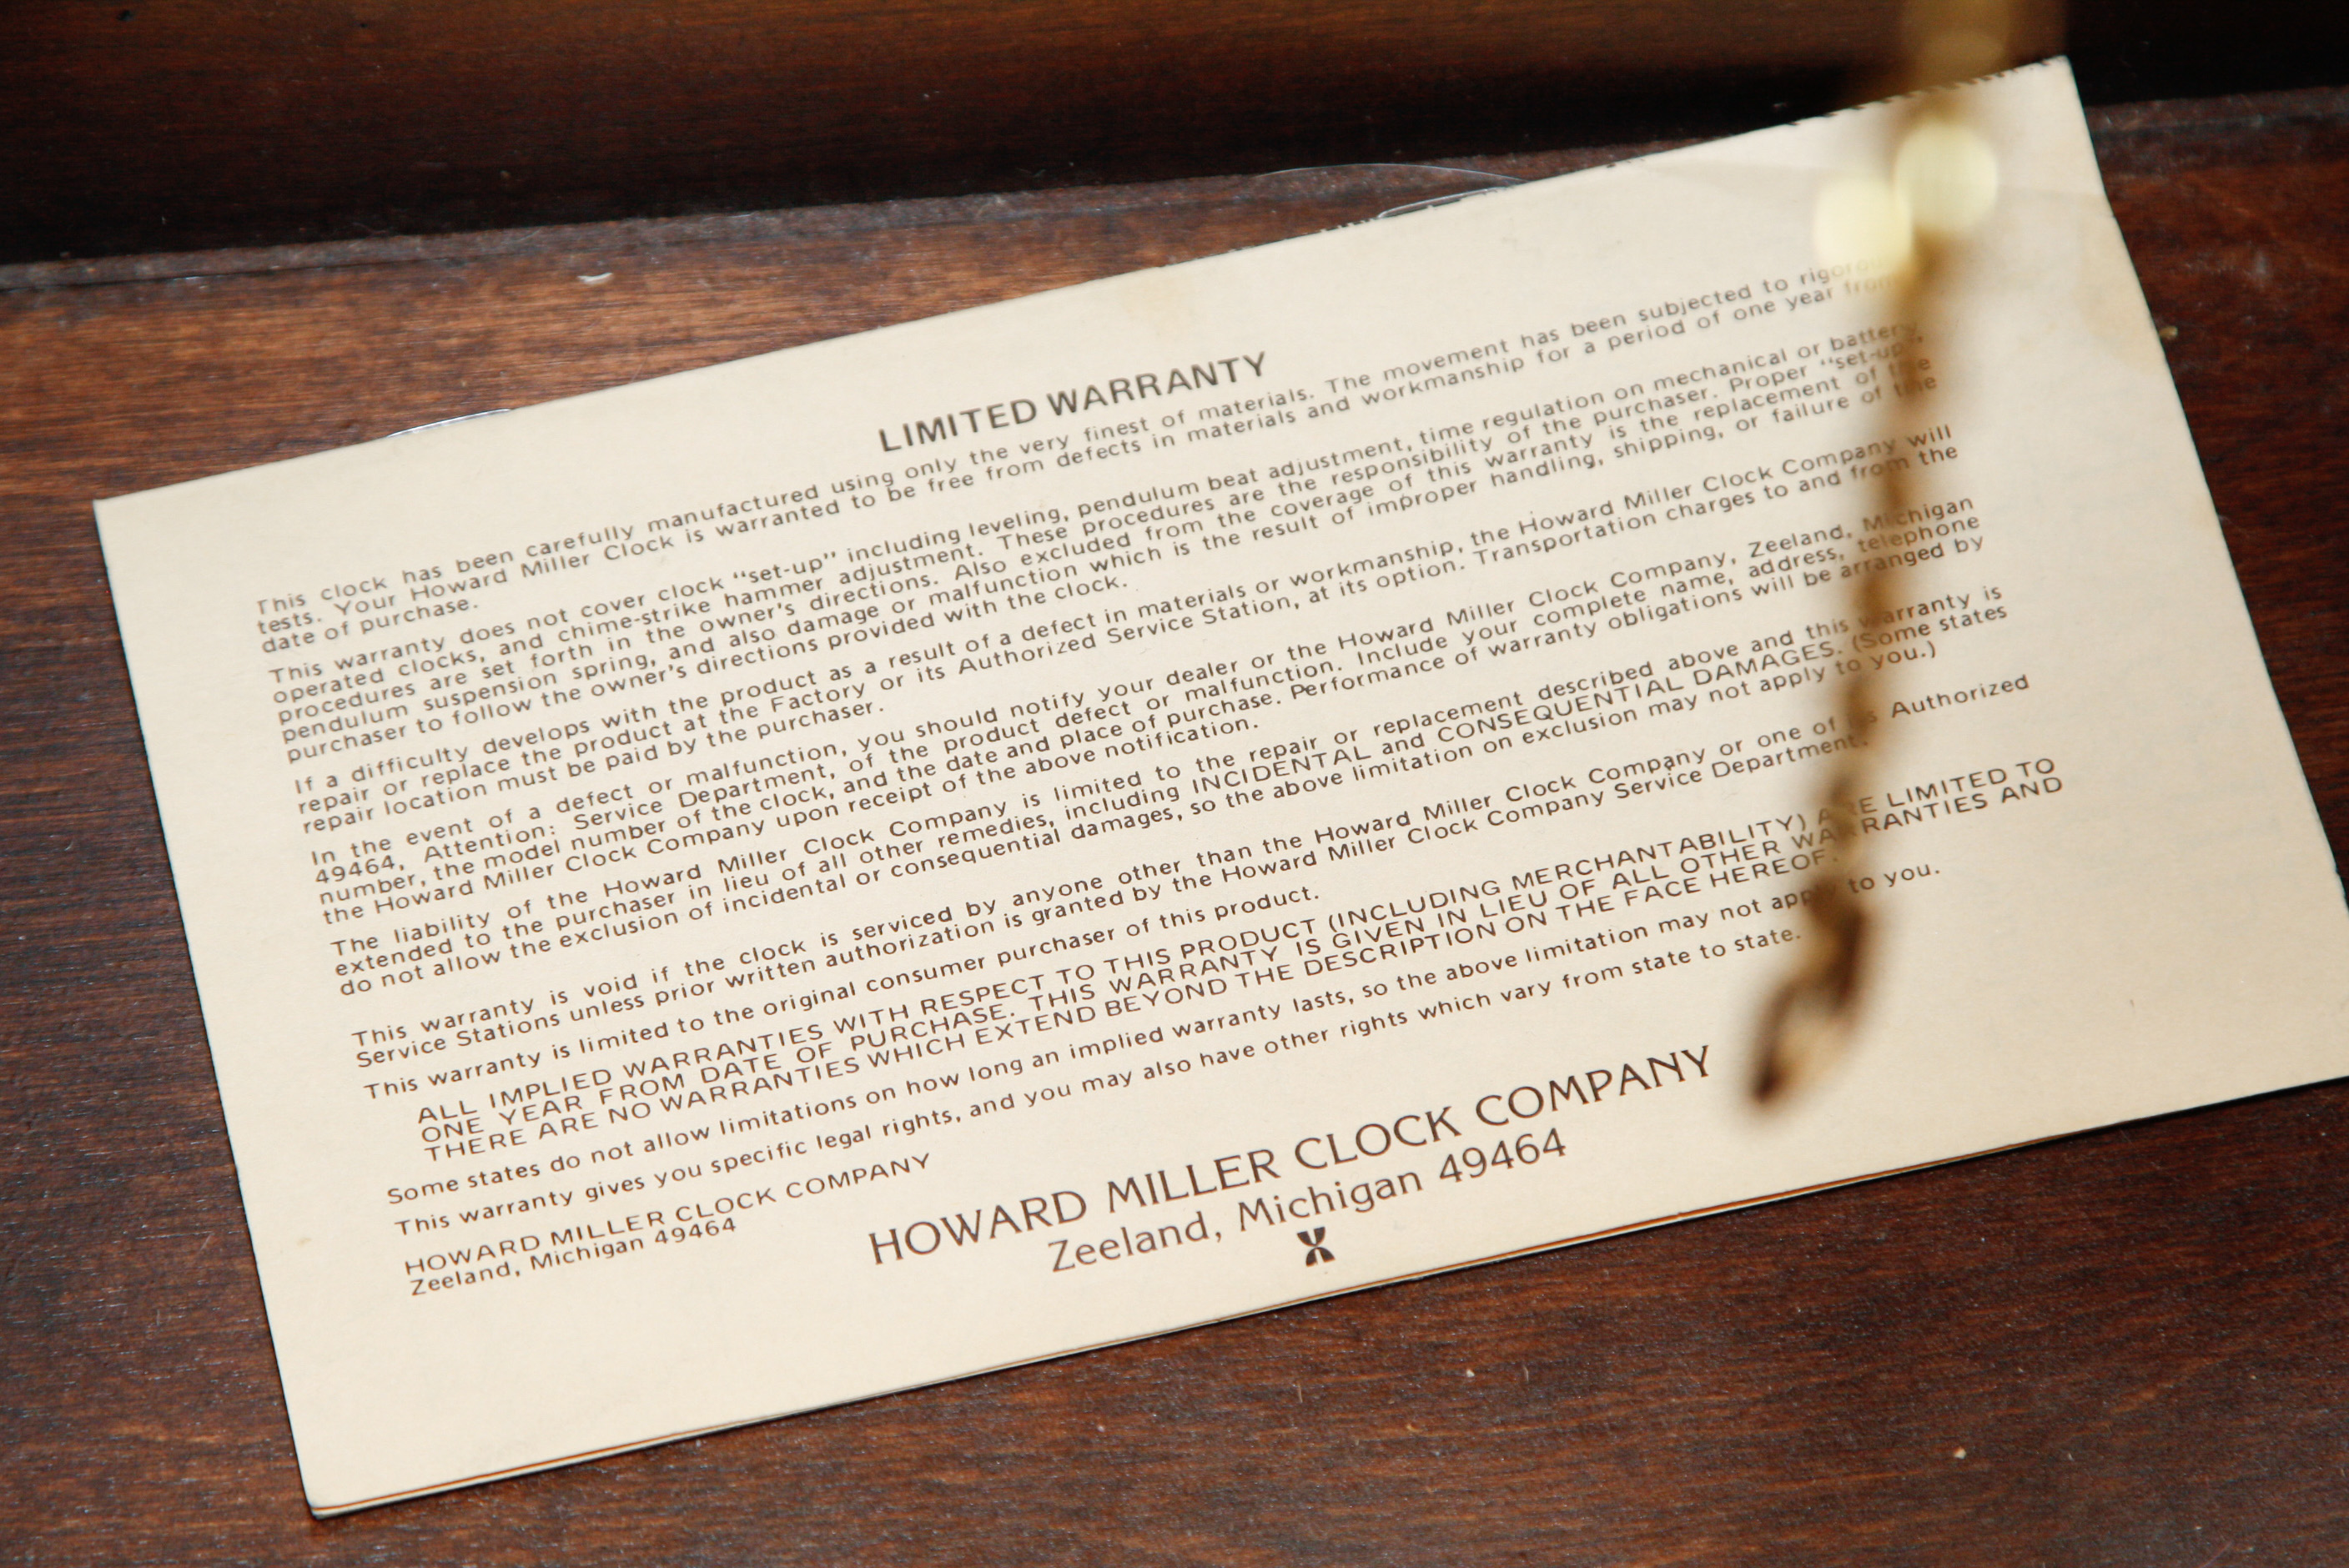 LIMITED WARRANTY
This clock has been carefully manufactured using only the very finest of materials. The movement has been subjected to
tests. Your Howard Miller Clock is warranted to be free from defects in materials and workmanship for a period of one year from
date of purchase.
This warranty does not cover clock "set-up" including leveling, pendulum beat adjustment, time regulation on mechanical or battery
operated clocks, and chime-strike hammer adjustment. These procedures are the responsibility of the purchaser. Proper "set-up",
procedures are set forth in the owner's directions. Also excluded from the coverage of this warranty is the replacement of the
pendulum suspension spring, and also damage or malfunction which is the result of improper handling, shipping, or failure of the
purchaser to follow the owner's directions provided with the clock.
If a difficulty develops with the product as a result of a defect in materials or workmanship, the Howard Miller Clock Company will
repair or replace the product at the Factory or its Authorized Service Station, at its option. Transportation charges to and from the
repair location must be paid by the purchaser.
In the event of a defect or malfunction, you should notify your dealer or the Howard Miller Clock Company, Zeeland, Michigan
49464, Attention: Service Department, of the product defect or malfunction. Include your complete name, address, telephone
number, the model number of the clock, and the date and place of purchase. Performance of warranty obligations will be arranged by
the Howard Miller Clock Company upon receipt of the above notification.
The liability of the Howard Miller Clock Company is limited to the repair or replacement described above and this warranty is
extended to the purchaser in lieu of all other remedies, including INCIDENTAL and CONSEQUENTIAL DAMAGES. (Some states
do not allow the exclusion of incidental or consequential damages, so the above limitation on exclusion may not apply to you.)
This warranty is void if the clock is serviced by anyone other than the Howard Miller Clock Company or one of its Authorized
Service Stations unless prior written authorization is granted by the Howard Miller Clock Company Service Department.
This warranty is limited to the original consumer purchaser of this product.
ALL IMPLIED WARRANTIES WITH RESPECT TO THIS PRODUCT (INCLUDING MERCHANTABILITY) ARE LIMITED TO
ONE YEAR FROM DATE OF PURCHASE. THIS WARRANTY IS GIVEN IN LIEU OF ALL OTHER WARRANTIES AND
THERE ARE NO WARRANTIES WHICH EXTEND BEYOND THE DESCRIPTION ON THE FACE HEREOF.
Some states do not allow limitations on how long an implied warranty lasts, so the above limitation may not apply to you.
This warranty gives you specific legal rights, and you may also have other rights which vary from state to state.
HOWARD MILLER CLOCK COMPANY
Zeeland, Michigan 49464
HOWARD MILLER CLOCK COMPANY
Zeeland, Michigan 49464